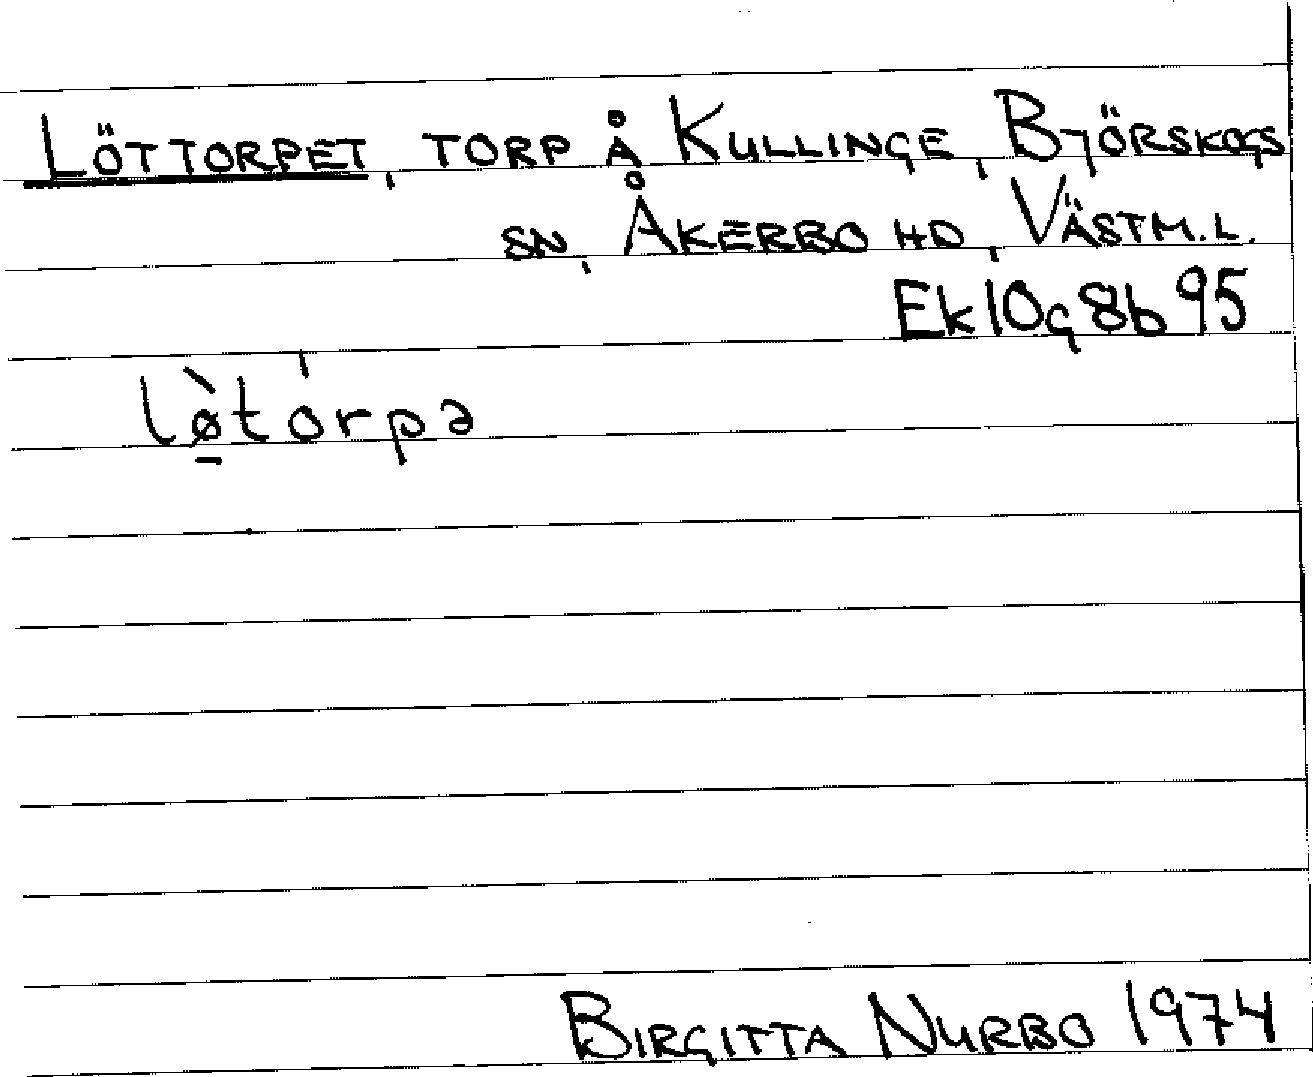 LÖTTORPET, TORP Å KULLINGE, BJÖRSKOGS
SN, ÅKERBO HD, VÄSTM.L.
Ek 10g 8b 95
lø̠̀tórpə
BIRGITTA NURBO 1974